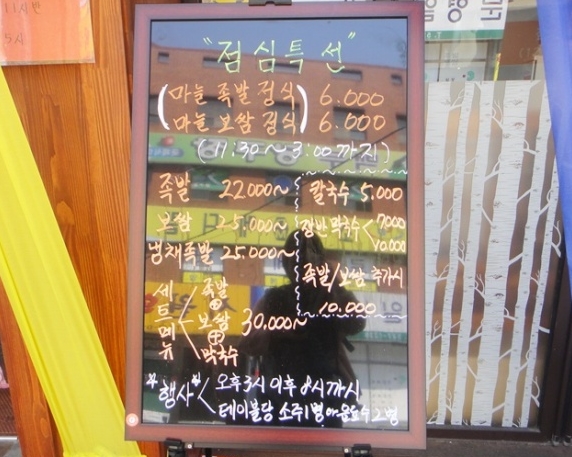 "점심특선"
(마늘 족발 정식) 6.000
(마늘 보쌈 정식) 6.000
(11:30~3:00까지)
족발 22.000~
보쌈 25.000~
냉채족발 25.000~
세트메뉴 < 족발 + 보쌈 + 막국수 30.000~
칼국수 5.000
쟁반막국수 < 7000
10.000
족발/보쌈 추가시
10.000
"행사" < 오후3시이후 8시까시
테이블당 소주1병 음료수2병